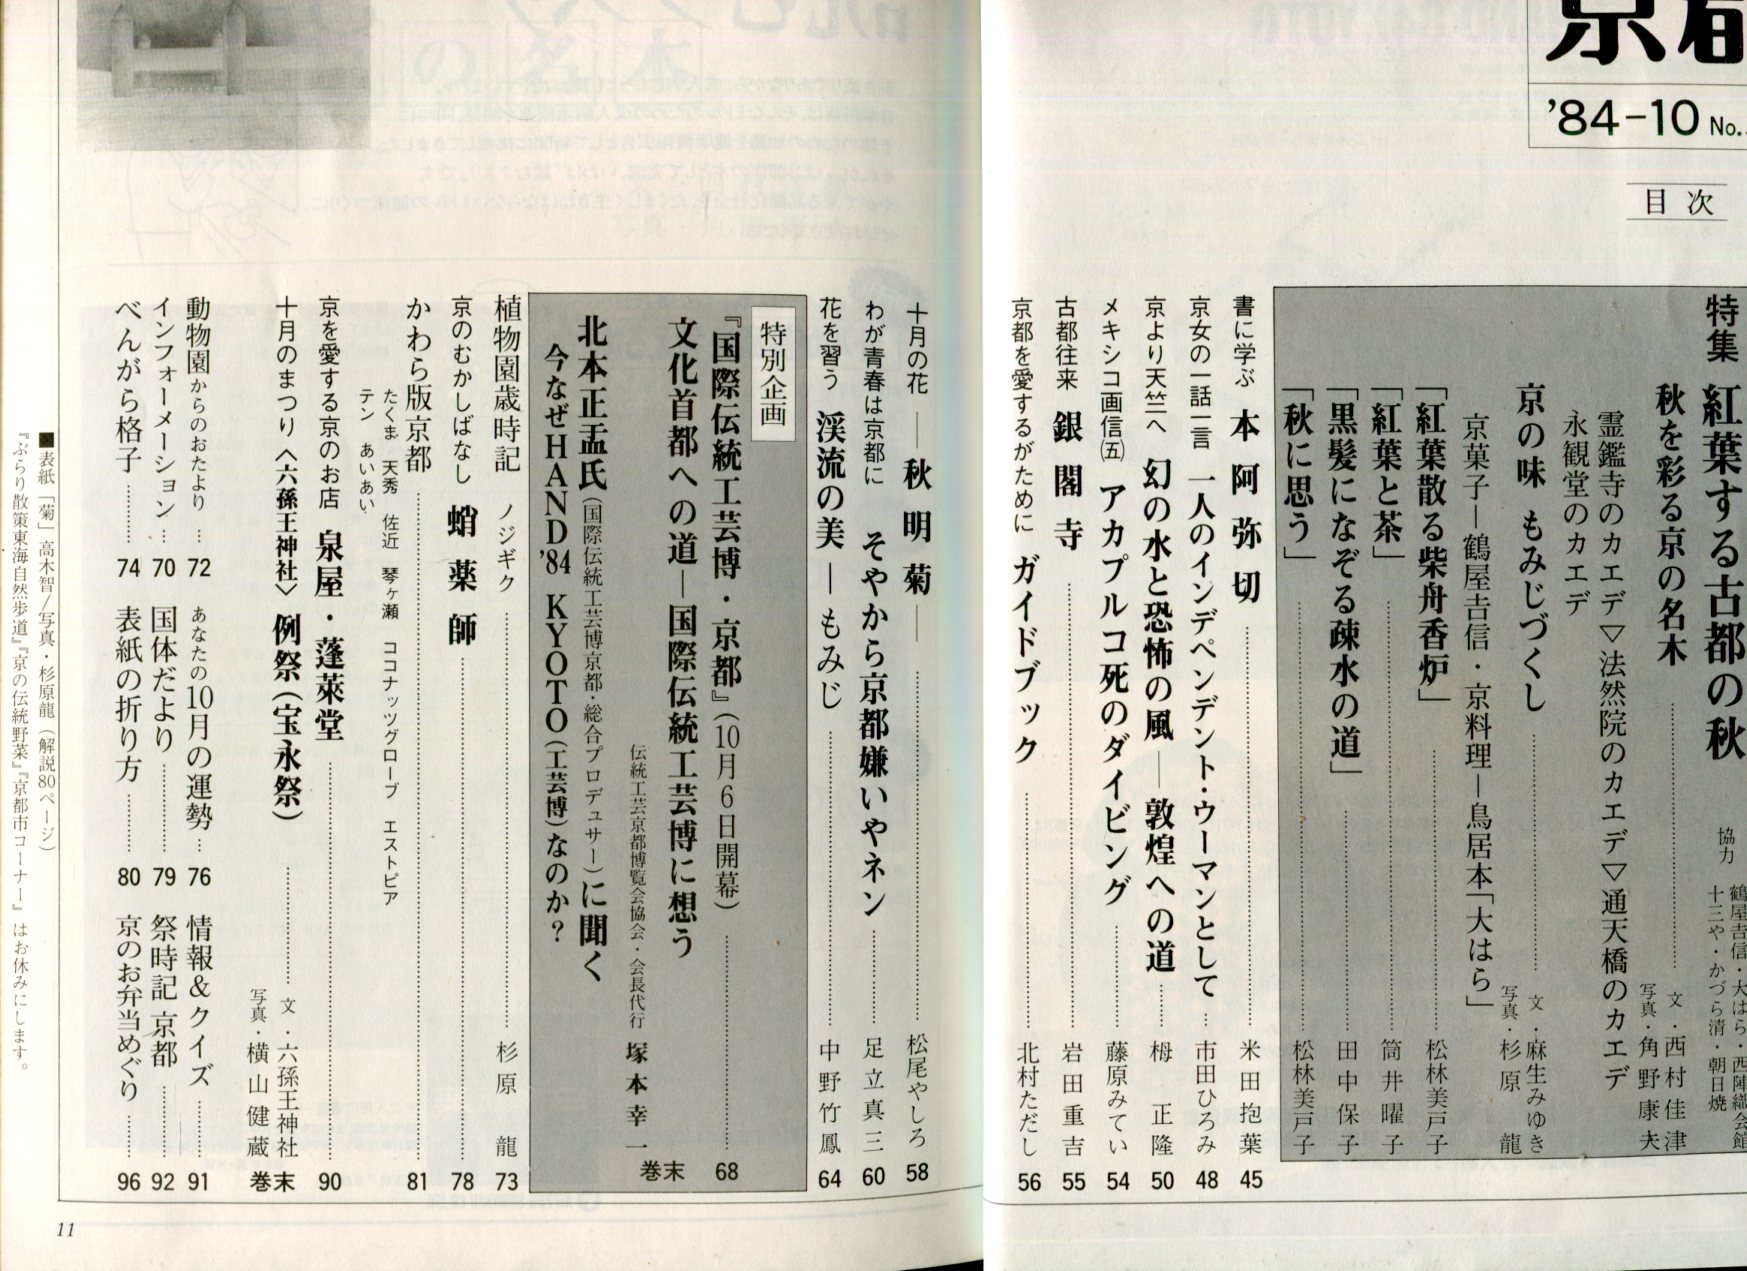 京都
'84-10 No.
目次
特集 紅葉する古都の秋
協力 鶴屋吉信・大はら・西陣織会館
十三や・かづら清・朝日焼
秋を彩る京の名木 文・西村佳津
写真・角野康夫
霊鑑寺のカエデ▽法然院のカエデ▽通天橋のカエデ
永観堂のカエデ
京の味 もみじづくし 文・麻生みゆき
写真・杉原 龍
京菓子―鶴屋吉信・京料理―鳥居本「大はら」
「紅葉散る柴舟香炉」 松林美戸子
「紅葉と茶」 筒井曜子
「黒髪になぞる疎水の道」 田中保子
「秋に思う」 松林美戸子
書に学ぶ 本阿弥切 米田抱葉 45
京女の一話一言 一人のインデペンデント・ウーマンとして 市田ひろみ 48
京より天竺へ 幻の水と恐怖の風―敦煌への道 栂 正隆 50
メキシコ画信㈤ アカプルコ死のダイビング 藤原みてい 54
古都往来 銀閣寺 岩田重吉 55
京都を愛するがために ガイドブック 北村ただし 56
十月の花―秋明菊― 松尾やしろ 58
わが青春は京都に そやから京都嫌いやネン 足立真三 60
花を習う 渓流の美―もみじ 中野竹鳳 64
特別企画
『国際伝統工芸博・京都』(10月6日開幕) 68
文化首都への道―国際伝統工芸博に想う
伝統工芸京都博覧会協会・会長代行 塚本幸一 巻末
北本正孟氏(国際伝統工芸博京都・総合プロデュサー)に聞く
今なぜHAND'84 KYOTO(工芸博)なのか?
植物園歳時記 ノジギク 杉原 龍 73
京のむかしばなし 蛸薬師 78
かわら版京都 81
たくま 天秀 佐近 琴ヶ瀬 ココナッツグローブ エストピア
テン あいあい
京を愛する京のお店 泉屋・蓬萊堂 90
十月のまつり〈六孫王神社〉例祭(宝永祭) 文・六孫王神社
写真・横山健蔵 巻末
動物園からのおたより 72 あなたの10月の運勢 76 情報&クイズ 91
インフォーメーション 70 国体だより 79 祭時記 京都 92
べんがら格子 74 表紙の折り方 80 京のお弁当めぐり 96
■表紙「菊」高木智/写真・杉原龍(解説80ページ)
『ぶらり散策東海自然歩道』『京の伝統野菜』『京都市コーナー』はお休みにします。
11